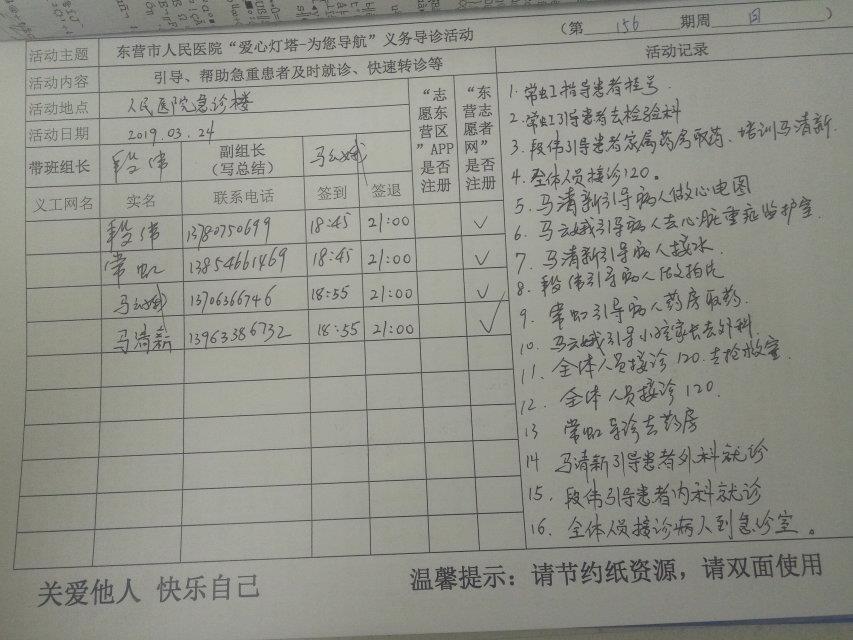 东营市人民医院“爱心灯塔-为您导航”义务导诊活动 （第 156 期周 日 ）
活动主题
活动内容 引导、帮助急重患者及时就诊、快速转诊等 活动记录
活动地点 人民医院急诊楼
活动日期 2019.03.24
带班组长 段伟 副组长（写总结） 马云娥
“志愿东营区”APP是否注册 “东营志愿者网”是否注册
义工网名 实名 联系电话 签到 签退
段伟 13780750699 18:45 21:00 ✓
常虹 13854661469 18:45 21:00 ✓
马云娥 13706366746 18:55 21:00 ✓
马清新 13963386732 18:55 21:00 ✓
1. 常虹指导患者挂号.
2. 常虹引导患者去检验科
3. 段伟引导患者家属药房取药、培训马清新.
4. 全体人员接诊120。
5. 马清新引导病人做心电图
6. 马云娥引导病人去心脏重症监护室.
7. 马清新引导病人接水.
8. 段伟引导病人做拍片
9. 常虹引导病人药房取药.
10. 马云娥引导小孩家长去外科.
11. 全体人员接诊120.去抢救室.
12. 全体人员接诊120.
13 常虹导诊去药房
14 马清新引导患者外科就诊
15. 段伟引导患者内科就诊
16. 全体人员接诊病人到急诊室。
关爱他人 快乐自己
温馨提示：请节约纸资源，请双面使用